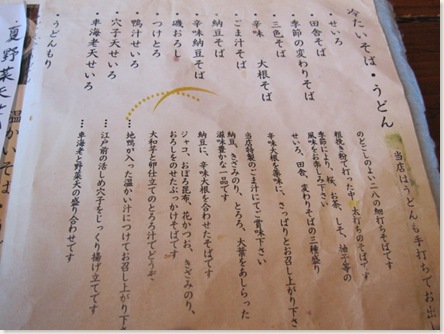 冷たいそば・うどん
当店はうどんも手打ちでお出
・せいろ
のどごしのよい二八の細打ちそばです
・田舎そば
粗挽き粉で打った中太打ちのそばです
・季節の変わりそば
季節により、桜、お茶、しそ、柚子等の
風味をお楽しみ下さい
・三色そば
せいろ、田舎、変わりそばの三種盛り
・辛味大根そば
辛味大根を薬味に、さっぱりとお召し上がり下さ
・ごま汁そば
当店特製のごま汁にてご賞味下さい
・納豆そば
納豆、きざみのり、とろろ、大葉をあしらった
滋味豊かな一品です
・辛味納豆そば
納豆に、辛味大根を合わせたそばです
・磯おろし
ジャコ、おぼろ昆布、花かつお、きざみのり、
おろしをのせたぶっかけそばです
・つけとろ
大和芋と卵仕立てのとろろ汁でどうぞ
・鴨汁せいろ
…地鴨が入った温かい汁につけてお召し上がり下
・穴子天せいろ
…江戸前の活しめ穴子をじっくり揚げ立てです
・車海老天せいろ
…車海老と野菜天の盛り合わせです
・うどんもり
夏野菜天
温かいそば